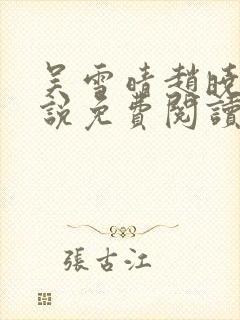 吴雪晴趙曉
說免費閱讀
張古江